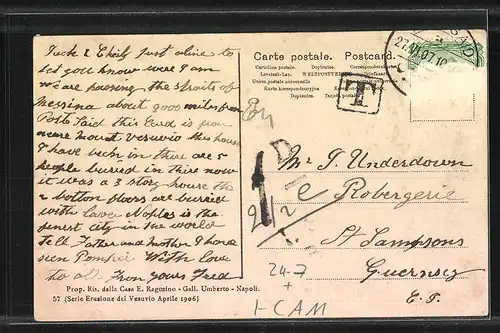 Jack & Cheily Just aline to
let you know were I am
we are passing the straits of
Messina about 900 miles from
Port Said this card is from
neare Mount Vesuvio this house
I have bech in thire are 5
people buried in thire now
it was a 3 story house the
2 bottom floors are buried
with lava Naples is the
finest city in the world
tell Father and Mother I have
seen Pompei With love
to all. From yours Fred
Prop. Ris. dalla Casa E. Ragozino - Gall. Umberto - Napoli.
57 (Serie Eruzione del Vesuvio Aprile 1906)
Carte postale. Postcard.
Cartolina postale. Dopisnice. Correspondenzkarte
Levelező-Lap. WELTPOSTVEREIN
Union postale universelle
Karta korespondencyjna
Dopisnica.
T
SAID
27.VI.07.10
D
1
2 1/2
Mr J. Underdown
e Robergerie
St Sampsons
Guernsey
C. I.
24-7
+
1-CAM